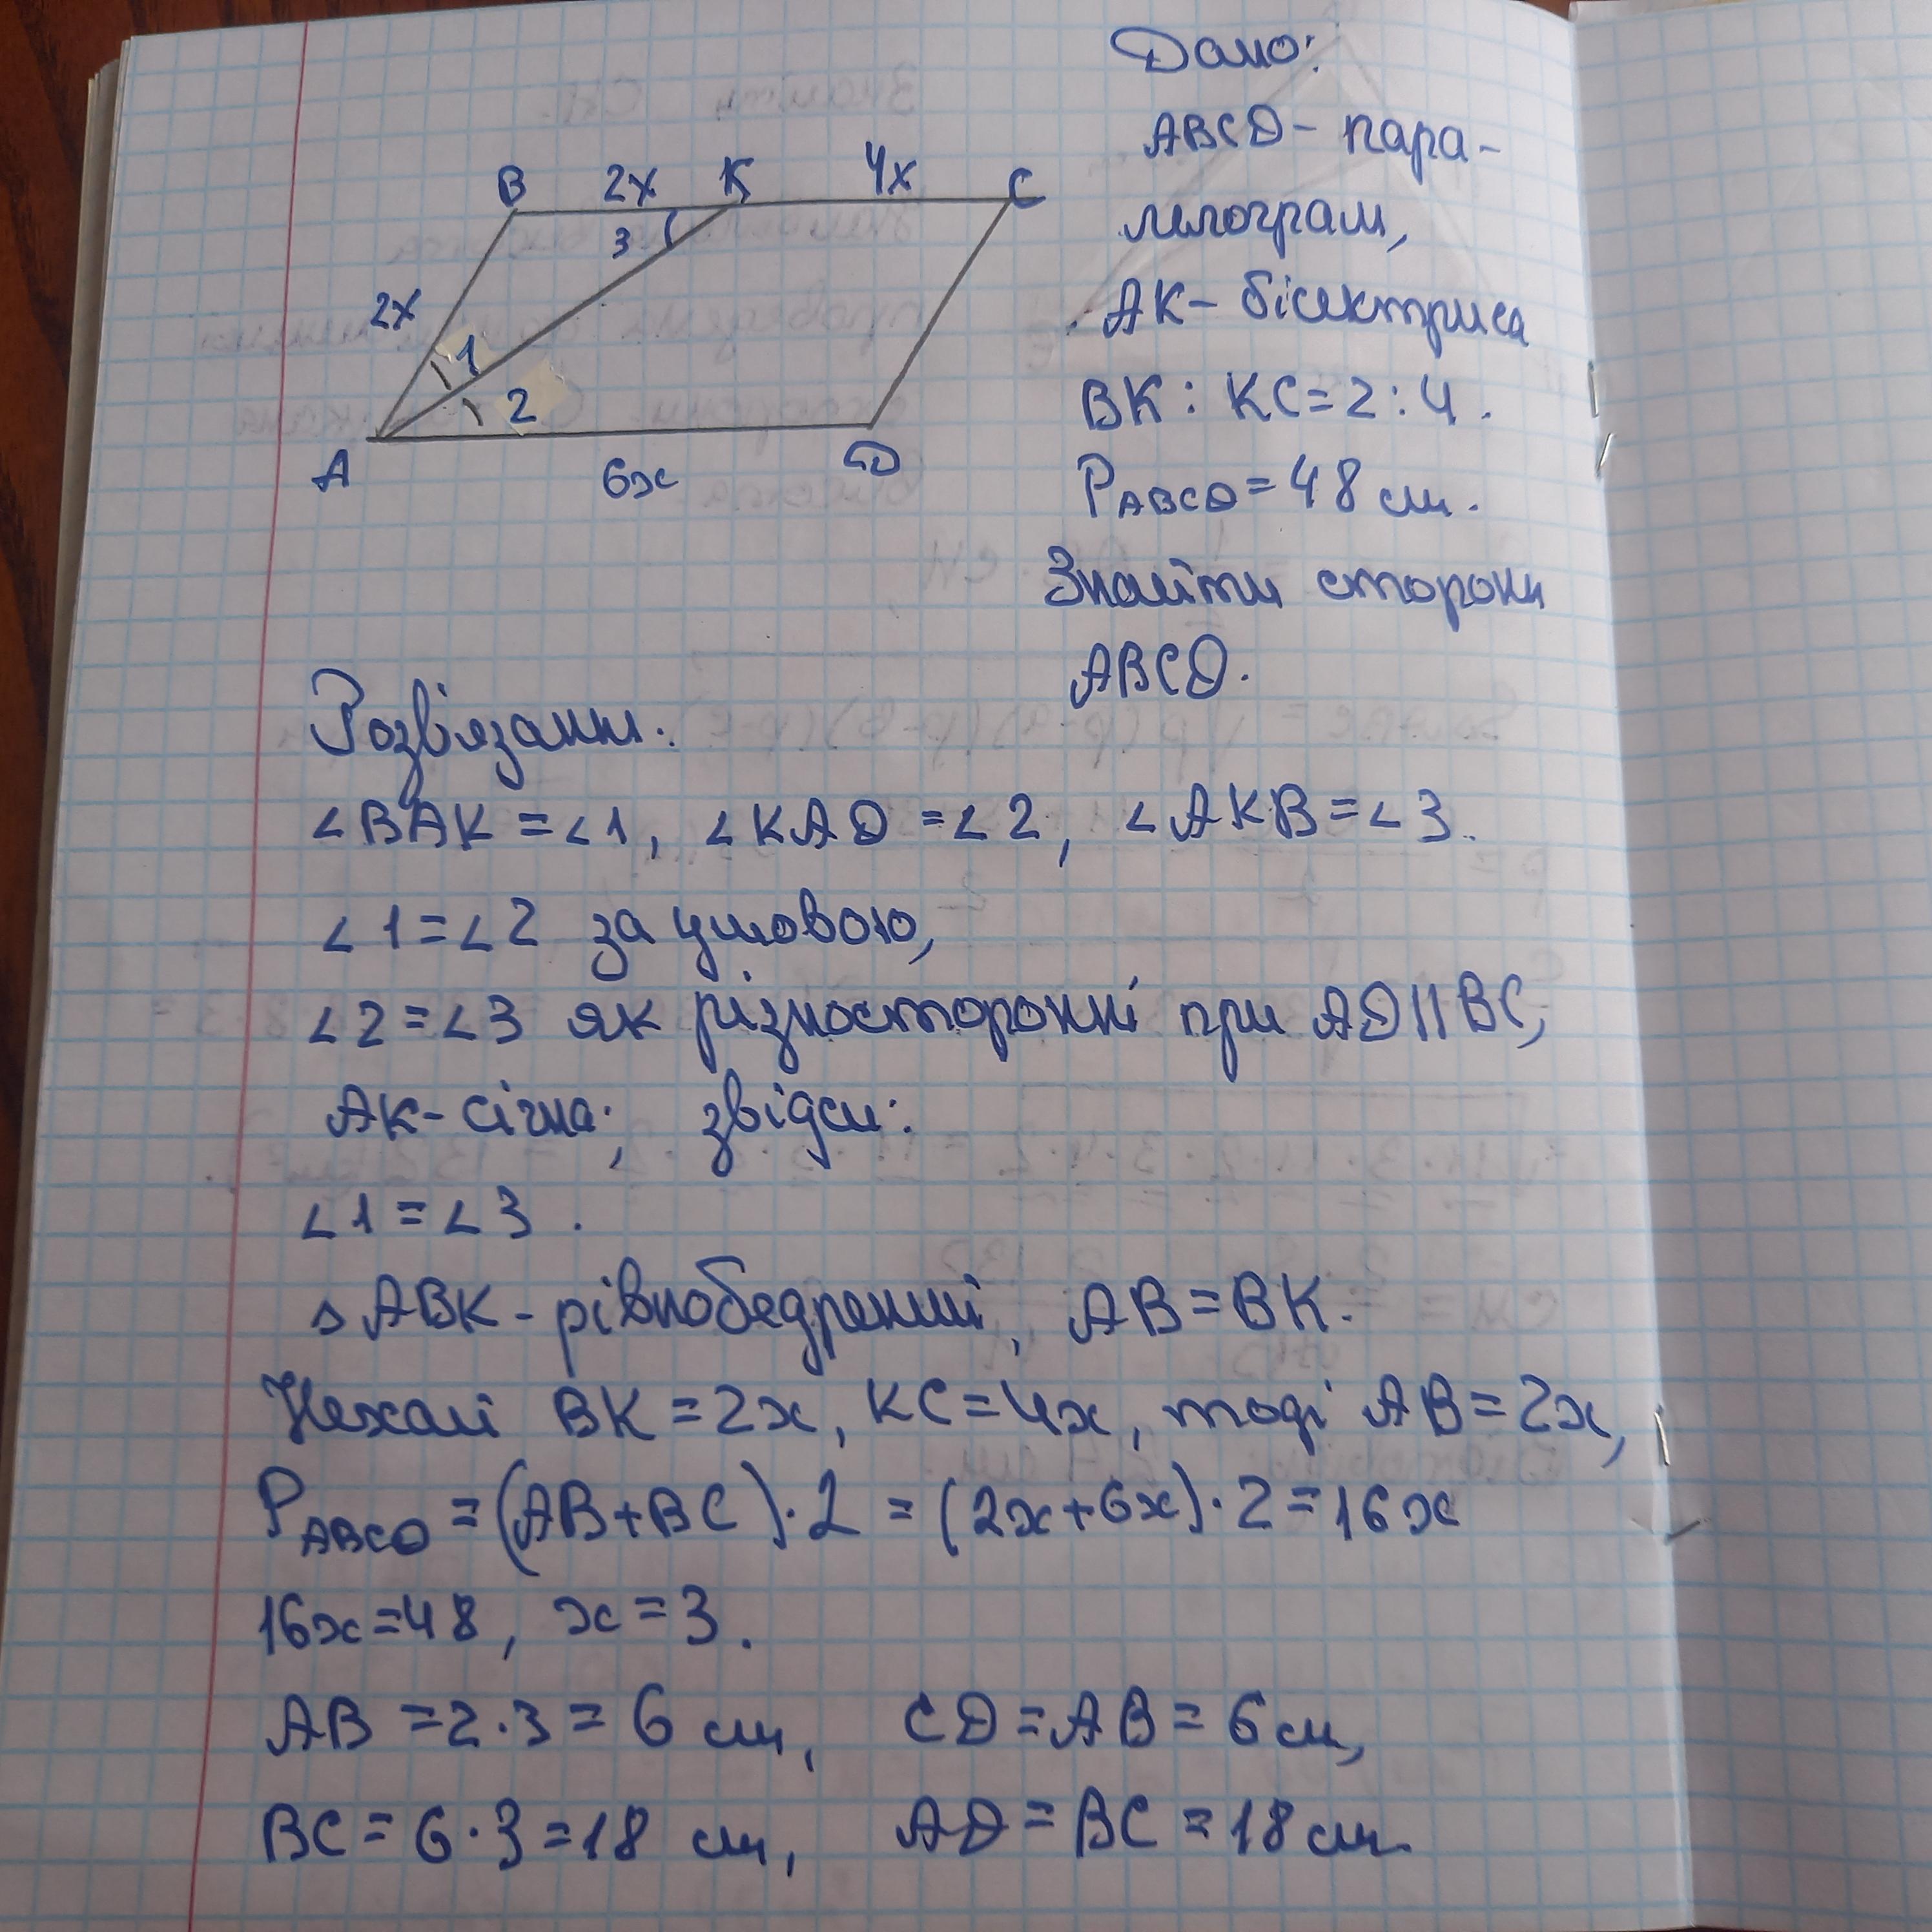 Дано:
ABCD - пара-
лелограм,
AK - бісектриса
BK : KC = 2 : 4.
P ABCD = 48 см.
Знайти сторони
ABCD.
B 2x K 4x C
3
2x
1
2
A 6x D
Розв'язання:
∠BAK = ∠1, ∠KAD = ∠2, ∠AKB = ∠3.
∠1 = ∠2 за умовою,
∠2 = ∠3 як різносторонні при AD || BC,
AK - січна; звідси:
∠1 = ∠3.
△ABK - рівнобедренний, AB = BK.
Нехай BK = 2x, KC = 4x, тоді AB = 2x,
P ABCD = (AB + BC) · 2 = (2x + 6x) · 2 = 16x
16x = 48, x = 3.
AB = 2 · 3 = 6 см, CD = AB = 6 см,
BC = 6 · 3 = 18 см, AD = BC = 18 см.